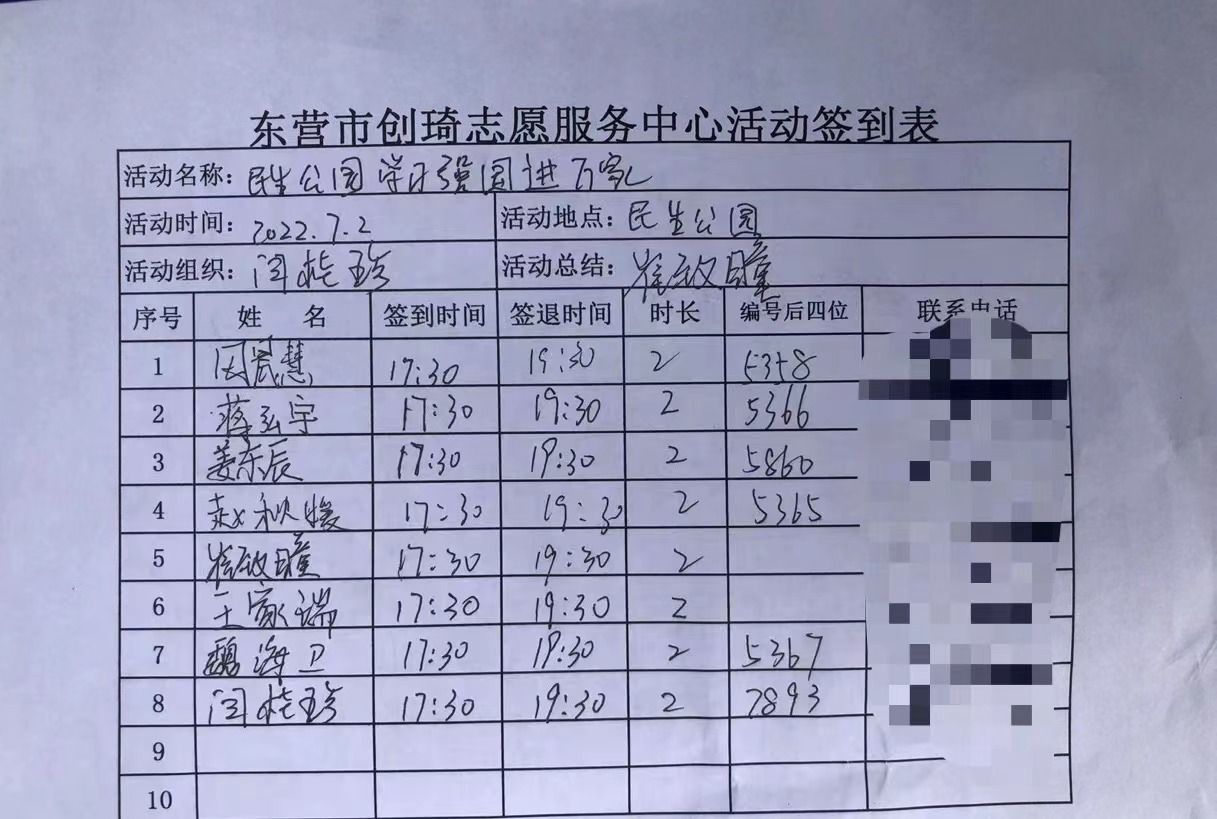 东营市创琦志愿服务中心活动签到表
活动名称：民生公园学习强国进万家
活动时间：2022.7.2 活动地点：民生公园
活动组织：闫桂珍 活动总结：崔致瞳
序号 姓 名 签到时间 签退时间 时长 编号后四位 联系电话
1 慧 17:30 19:30 2 5358
2 蒋弘宇 17:30 19:30 2 5366
3 姜东辰 17:30 19:30 2 5860
4 赵秋媛 17:30 19:30 2 5365
5 崔致瞳 17:30 19:30 2
6 王家瑞 17:30 19:30 2
7 魏海卫 17:30 19:30 2 5367
8 闫桂珍 17:30 19:30 2 7893
9
10